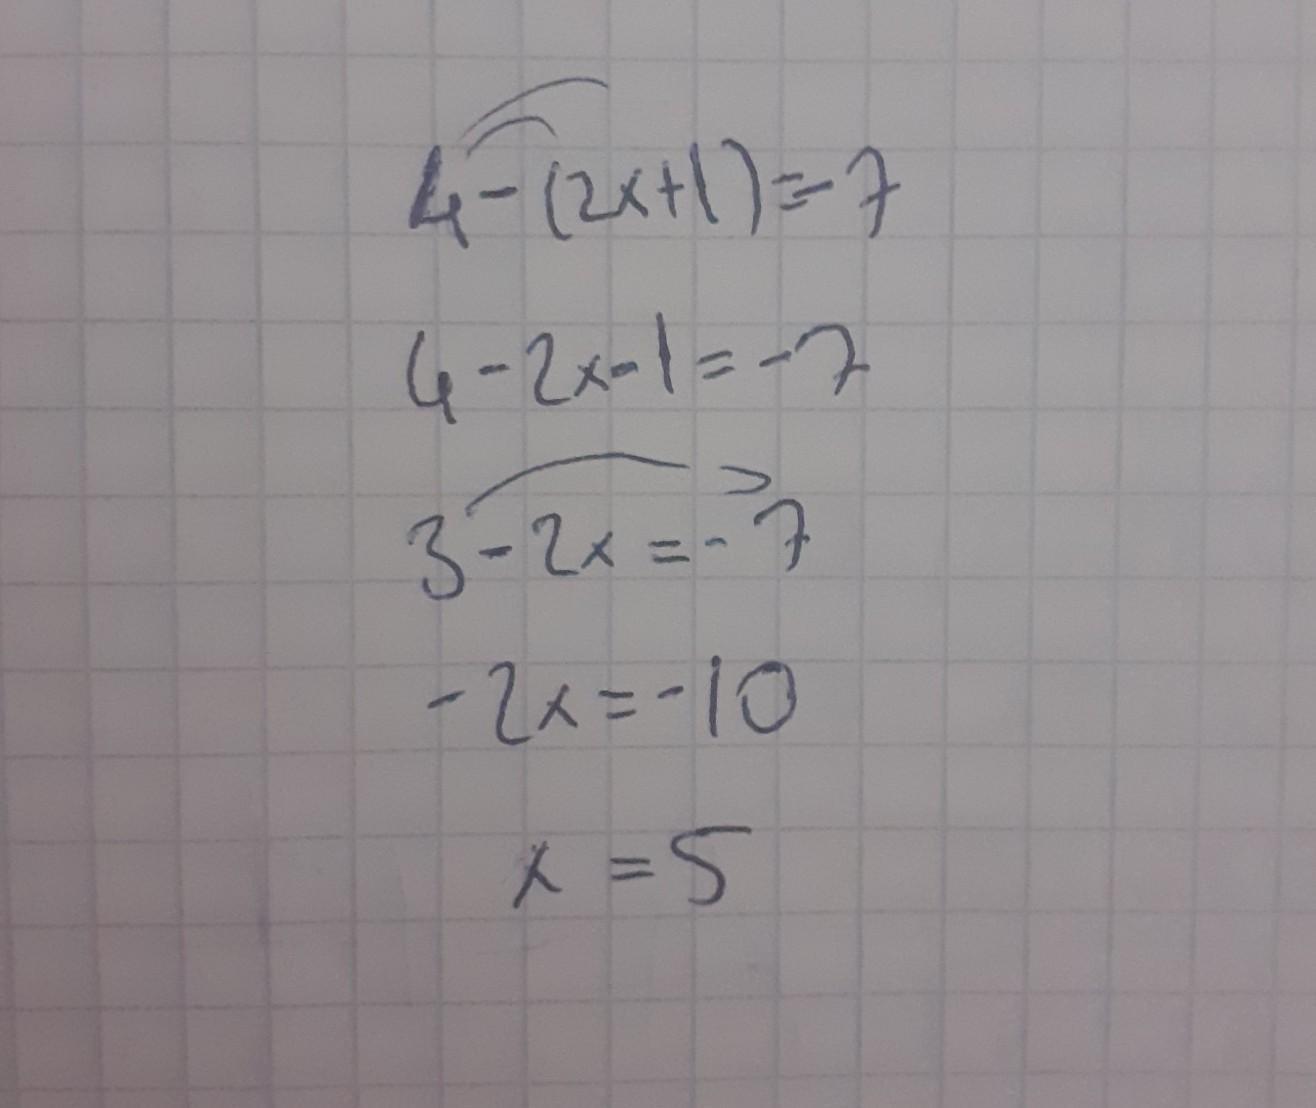 4-(2x+1)=-7
4-2x-1=-7
3-2x=-7
-2x=-10
x=5